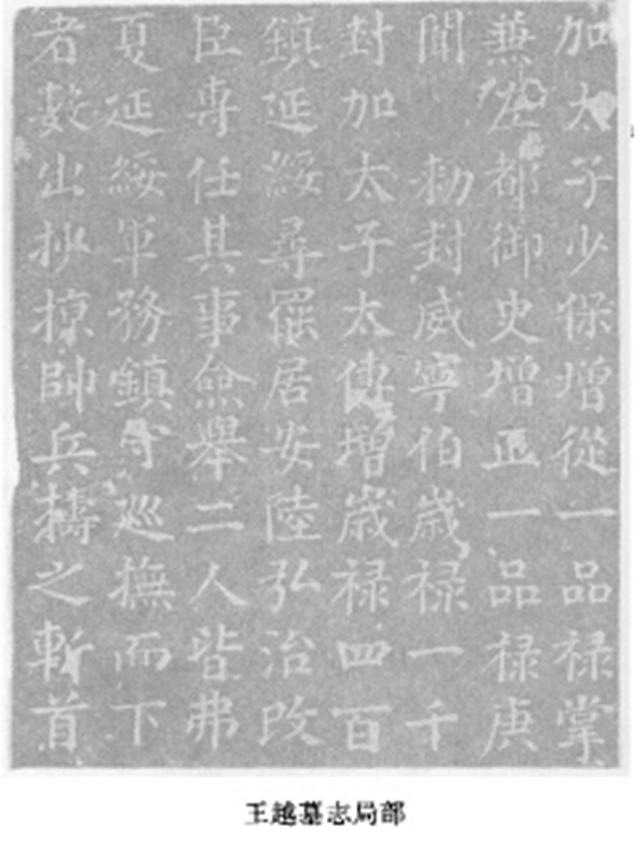 加太子少保增從一品禄掌
兼左都御史增正一品禄庚
聞 勑封威寧伯歲禄一千
封加太子太傅增歲禄四百
鎮延綏尋罷居安陸弘治改
臣專任其事僉舉二人皆弗
夏延綏軍務鎮守巡撫而下
者數出抄掠帥兵擣之斬首
王越墓志局部